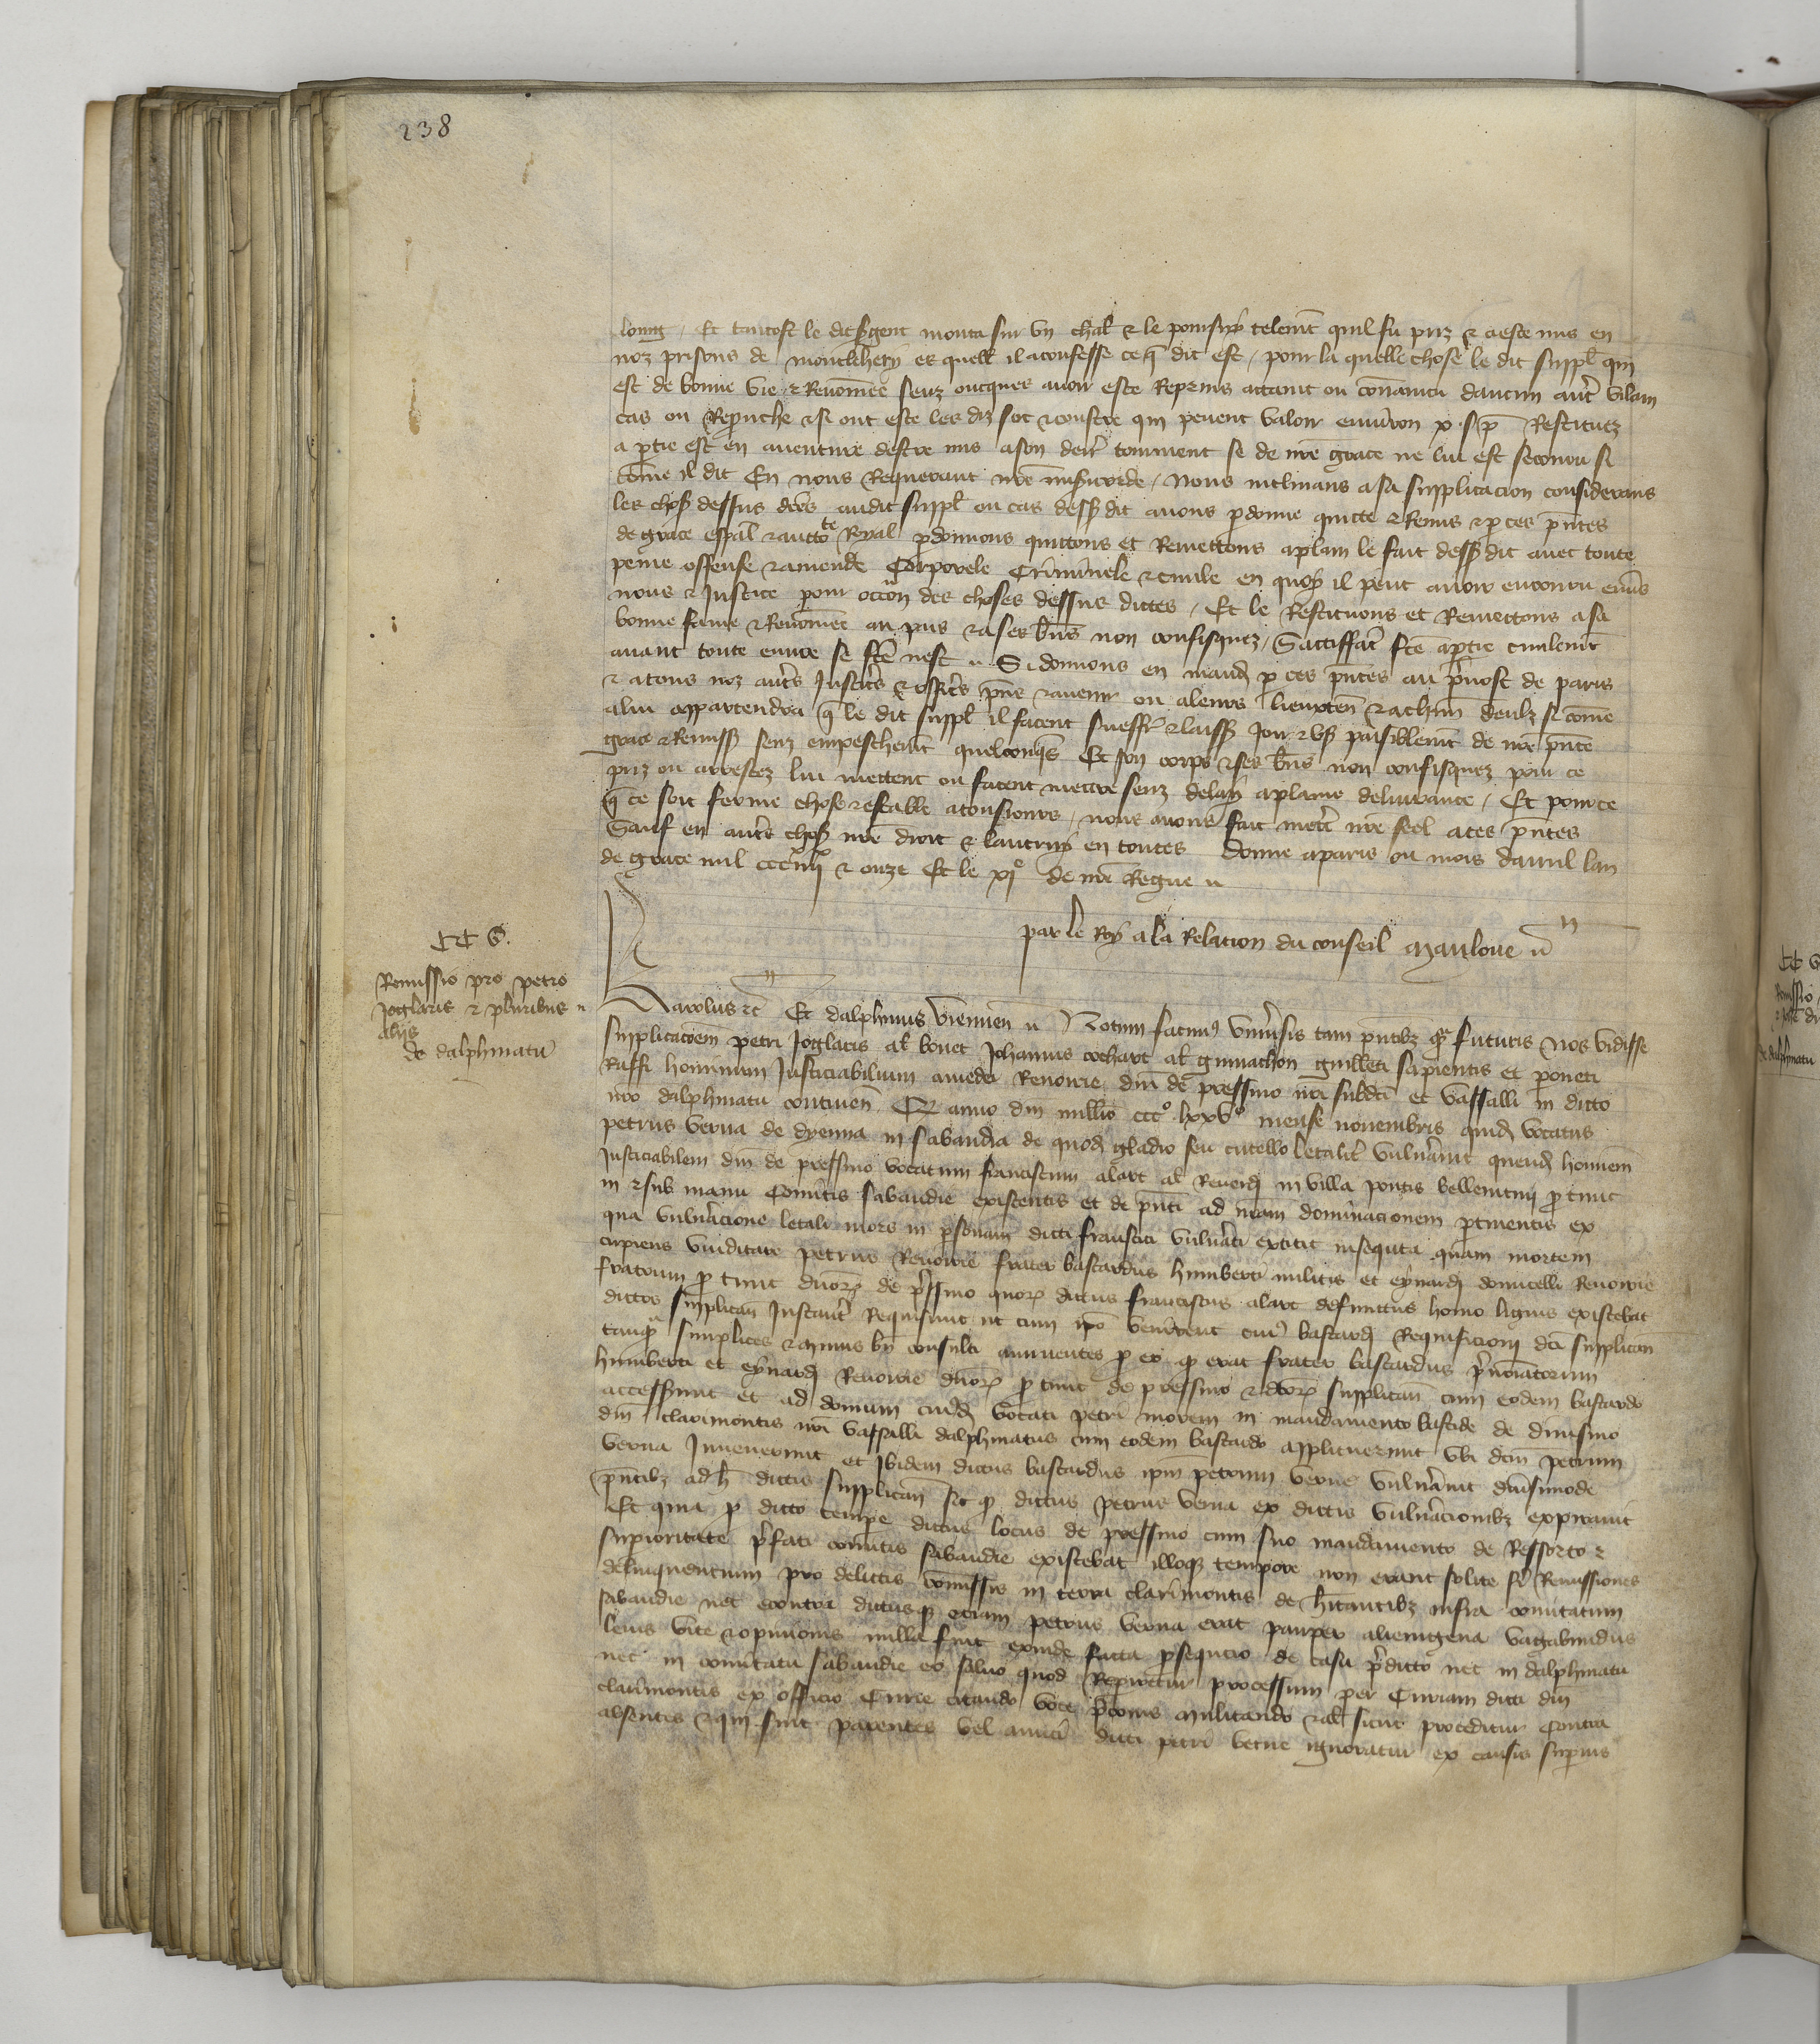 238
loing / Et tantost le dit sgent monta sur un chal & le poursuy telemt quil fu priz & a este mis en
noz prisons de montlehery es quelx il a confesse ce q dit est / pour la quelle chose le dit suppl qui
est de bonne vie & Renommee senz oncques avoir este Reprins attaint ou convaincu daucun autre vilain
cas ou Reprouche & si ont este les diz soc & coustre qui pevent valoir environ x s p Restituez
a partie est en aventure destre mis a son derr tourment se de nre grace ne lui est secouru si
comme il dit En nous Requerant nre misericorde / Nous inclinans a sa supplicacion considerans
les choses dessus dctes audit suppl ou cas dessus dit avons pdonne quicte & Remis & p ces pntes
de grace espal & auctote Royal pdonnons quittons et Remettons a plain le fait dessus dit avec toute
peine offense & amende Corporele Criminele & civile en quoy il peut avoir encouru envers
nous & Justice pour occon des choses dessus dictes / Et le Restituons et Remettons a sa
bonne fame & Renommee au pais & a ses biens non confisquez / Satiffaccion fce a ptie civilemt
avant toute euvre se fce nest Si donnons en mand p ces pntes au prevost de paris
& a tous noz autres Justiciers & officiers pns & avenir ou a leurs lieuxten & a chun deulx si comme
a lui appartendra q le dit suppl il facent sueffr & laiss Joir & user paisiblemt de nre pnte
grace & Remiss senz empeschemt quelconqs Et son corps & ses biens non confisquez pour ce
priz ou arrestez lui mettent ou facent mettre senz delay a plaine delivrance / Et pour ce
q ce soit ferme chose & estable a tousjours / nous avons fait mettre nre seel a ces pntes
Sauf en autres choses nre droit & lautruy en toutes Donne a paris ou mois davril lan
de grace mil ccc iiii xx & onze Et le xi o de nre Regne
par le Roy a la Relation du conseil Mauloue
CC V.
Remissio pro petro
Joglaris & pluribus
aliis
de dalphinatu
Karolus &c Et dalphinus viennen Notum facimus universis tam pntibz q futuris Nos vidisse
supplicacoem petri Joglaris al bonet Johannis cochart al guinachon guilleti sapientis et poneti
Ruffi hominum Justiciabilium amedei Revoirie dni de pressino nri subditi et vassalli in dicto
nro dalphinatu continen Q anno dni millio ccc o lxxv o mense novembris quid vocatus
petrus verna de dyenna in sabaudia de quod gladio seu cutello letaliter vulneravit quend hominem
Justiciabilem dni de pressino vocatum franciscum alart al Reverdi in villa pontis bellivicini p tunc
in & sub manu Comitis sabaudie existentis et de pnti ad nram dominacionem ptinentis ex
qua vulneracione letali mors in psonam dicti francisci vulnerati extitit insequta quam mortem
cupiens vindicare petrus Revoirie frater bastardus humberti militis et eynardi domicelli Revoirie
fratrum p tunc dnorum de pressino quorum dictus franciscus alart defunctus homo ligius existebat
dictos supplican Instanter Requisivit ut cum ipo venirent cui bastardi Requisicioni dci supplican
tanq simplices & minus bn consulti annuentes p eo q erat frater bastardus prenominatorum
humberti et eynardi Revoirie dnorum p tunc de pressino & dcorum supplican cum eodem bastardo
accesserunt et ad domum cuid vocati petri morem in mandamento bastide de divisino
dni clarimontis nri vassalli dalphinatus cum eodem bastardo applicuerunt ubi dcm petrum
verna Invenerunt et Ibidem dictus bastardus ipm petrum verne vulneravit
pntibz ad h dictis supplican sic q dictus petrus verna ex dictis vulneracionibz expiravit
Et quia p dicto tempe dictus locus de pressino cum suo mandamento de Ressorto &
supioritate prefati comitis sabaudie existebat illoq tempore non erant solite fi Remissiones
delinquentium pro delictis commissis in terra clarimontis de hitantibz infra comitatum
sabaudie nec econtra dictusq eciam petrus verna erat pauper alienigena vagabundus
levis vite & opinionis nulla fuit exinde facta psequcio de casu predicto nec in dalphinatu
nec in comitatu sabaudie eo salvo quod Repiretur processum per Curiam dicti dni
clarimontis ex officio Curie citando voce preconis & al sicut proceditur contra
absentes & qui sint parentes vel amici dicti petri verne ignoratur ex causis supius